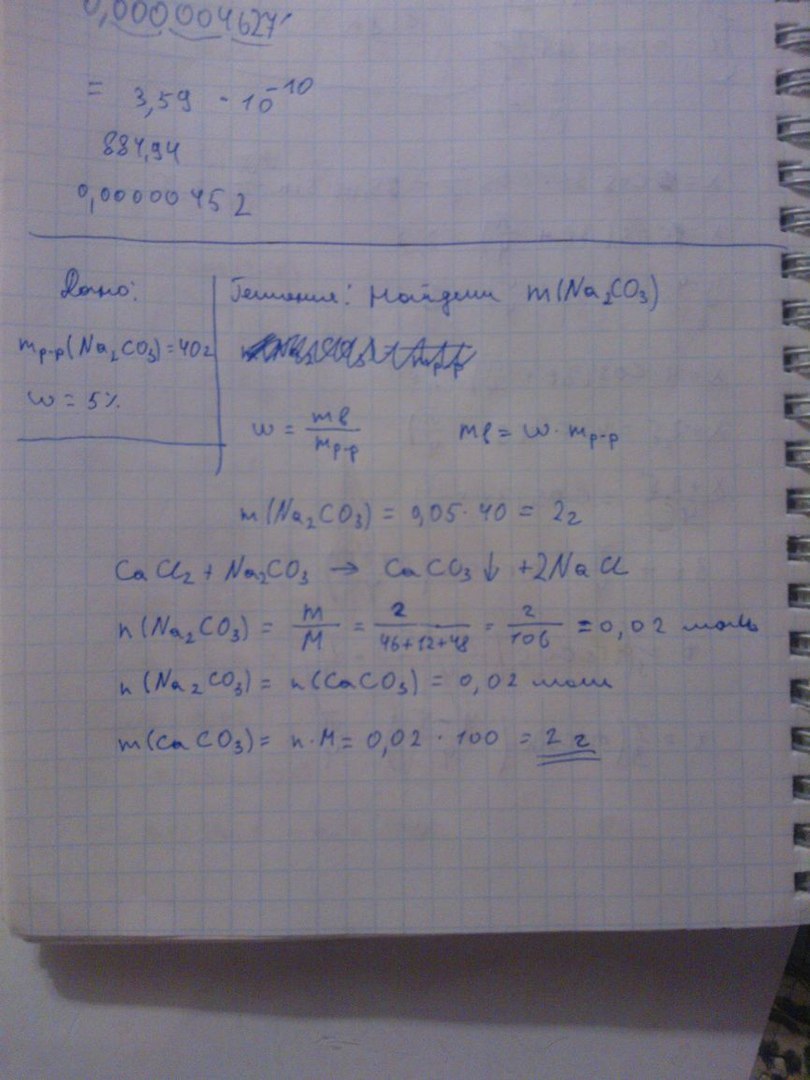 0,000004627
= 3,59 · 10^-10
884,94
0,00000452
Дано:
m р-р (Na2CO3) = 40г
w = 5%
Решение: Найдем m(Na2CO3)
w = mв / m р-р     mв = w · m р-р
m(Na2CO3) = 0,05 · 40 = 2г
CaCl2 + Na2CO3 → CaCO3↓ + 2NaCl
n(Na2CO3) = m / M = 2 / 46+12+48 = 2 / 106 = 0,02 моль
n(Na2CO3) = n(CaCO3) = 0,02 моль
m(CaCO3) = n·M = 0,02 · 100 = 2 г